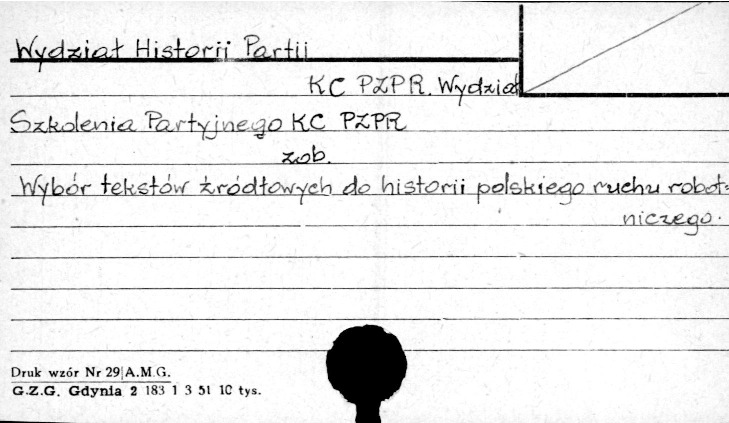 Wydział Historii Partii
KC PZPR. Wydział
Szkolenia Partyjnego KC PZPR
zob.
Wybór tekstów źródłowych do historii polskiego ruchu robot=
niczego.
Druk wzór Nr 29|A.M.G.
G.Z.G. Gdynia 2 183 1 3 51 10 tys.